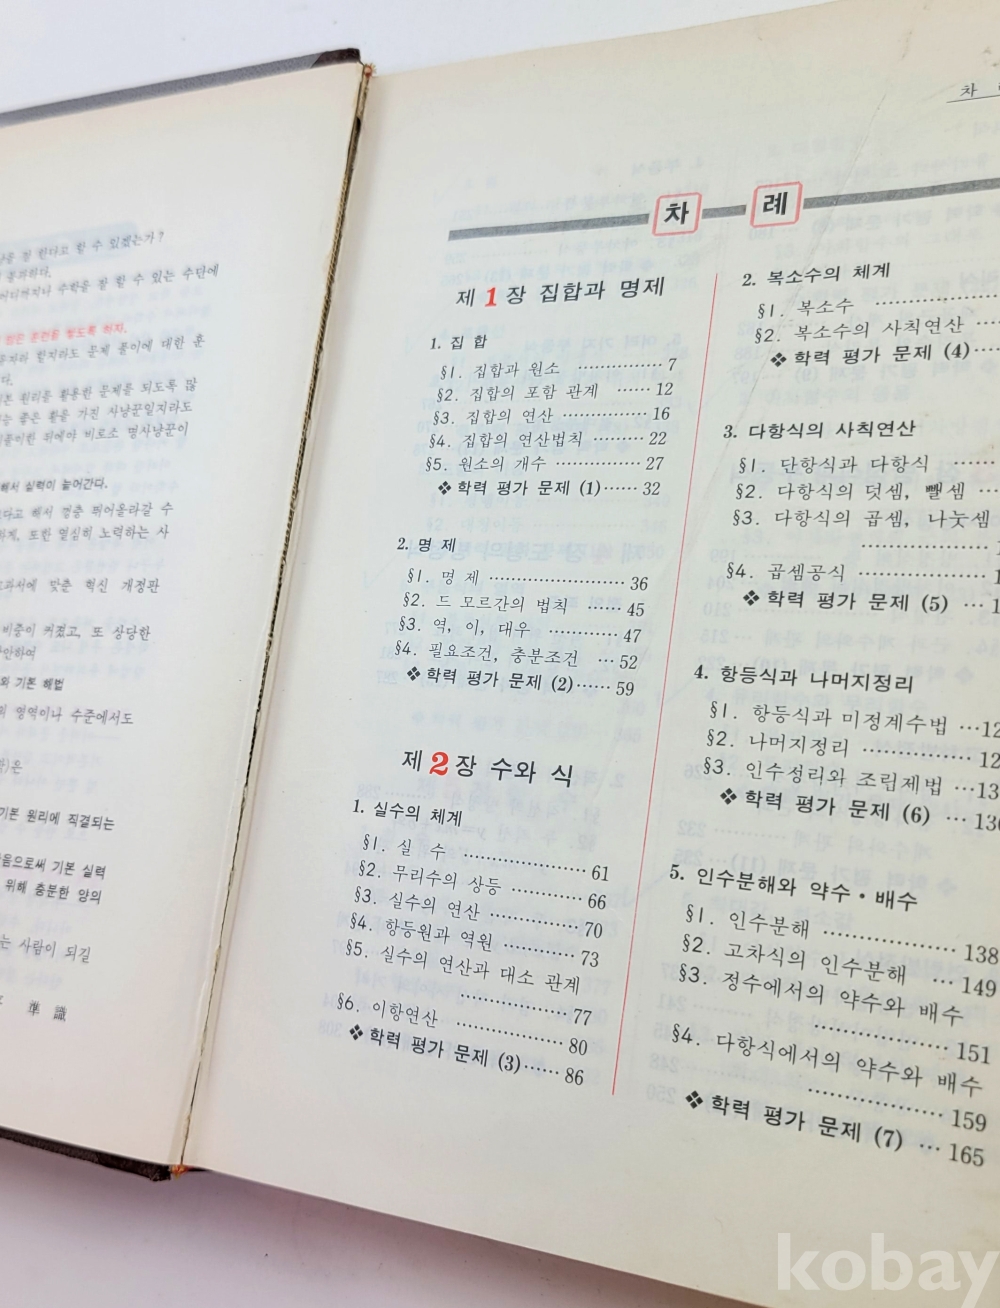 을 잘 한다고 할 수 있겠는가?
불과하다.
어디까지나 수학을 잘 할 수 있는 수단에
많은 훈련을 쌓도록 하자.
할지라도 문제 풀이에 대한 훈
다.
본 원리를 활용한 문제를 되도록 많
능 좋은 활을 가진 사냥꾼일지라도
뒤에야 비로소 명사냥꾼이
해서 실력이 늘어간다.
다고 해서 껑충 뛰어올라갈 수
하게, 또한 열심히 노력하는 사
교과서에 맞춘 혁신 개정판
비중이 커졌고, 또 상당한
안하여
와 기본 해법
의 영역이나 수준에서도
은
기본 원리에 직결되는
음으로써 기본 실력
위해 충분한 양의
는 사람이 되길
準 識
차
차 례
제 1 장 집합과 명제
1. 집 합
§1. 집합과 원소 ··············· 7
§2. 집합의 포함 관계 ······ 12
§3. 집합의 연산 ··············· 16
§4. 집합의 연산법칙 ········· 22
§5. 원소의 개수 ··············· 27
❖ 학력 평가 문제 (1)······ 32
2. 명 제
§1. 명 제 ························ 36
§2. 드 모르간의 법칙 ······ 45
§3. 역, 이, 대우 ············ 47
§4. 필요조건, 충분조건 ··· 52
❖ 학력 평가 문제 (2)······ 59
제 2 장 수와 식
1. 실수의 체계
§1. 실 수 ····················· 61
§2. 무리수의 상등 ············ 66
§3. 실수의 연산 ··············· 70
§4. 항등원과 역원 ············ 73
§5. 실수의 연산과 대소 관계
····················· 77
§6. 이항연산 ·················· 80
❖ 학력 평가 문제 (3)······ 86
2. 복소수의 체계
§1. 복소수 ··················
§2. 복소수의 사칙연산 ······
❖ 학력 평가 문제 (4) ····
3. 다항식의 사칙연산
§1. 단항식과 다항식 ······
§2. 다항식의 덧셈, 뺄셈 ···
§3. 다항식의 곱셈, 나눗셈
····················· 1
§4. 곱셈공식 ·················· 1
❖ 학력 평가 문제 (5) ··· 1
4. 항등식과 나머지정리
§1. 항등식과 미정계수법 ···12
§2. 나머지정리 ··············· 12
§3. 인수정리와 조립제법 ···13
❖ 학력 평가 문제 (6) ··· 136
5. 인수분해와 약수·배수
§1. 인수분해 ·················· 138
§2. 고차식의 인수분해 ··· 149
§3. 정수에서의 약수와 배수
····················· 151
§4. 다항식에서의 약수와 배수
····················· 159
❖ 학력 평가 문제 (7) ··· 165
kobay